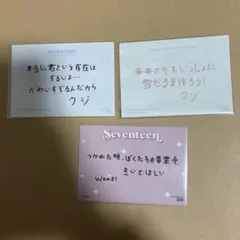 本当に君という存在は
ずるいよ…
かわいすぎるんだから
ウジ
来年の冬もいっしょに
雪だるま作ろう!
ウジ
Seventeen
つかれた時、ぼくたちの音楽を
きいてほしい
WOOZI